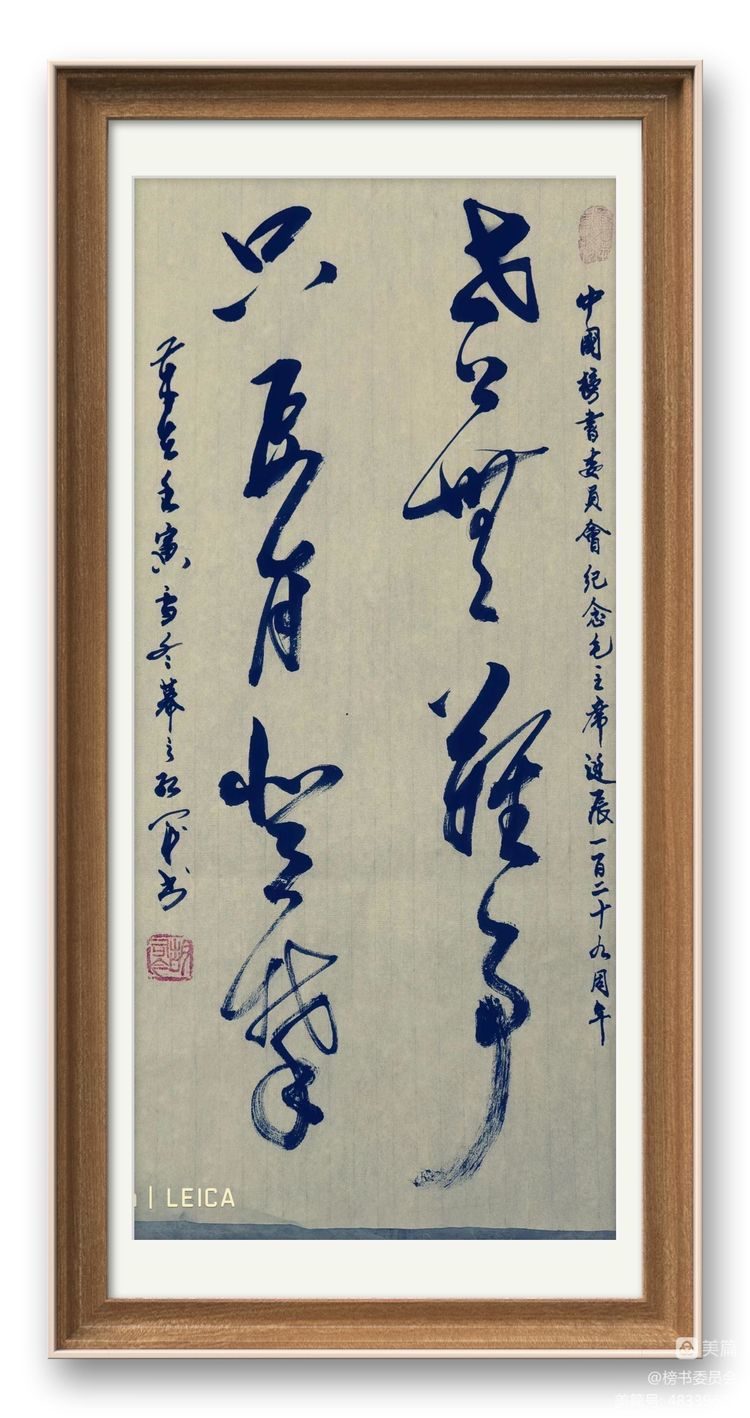 中國榜書委員會纪念毛主席诞辰一百二十九周年
世上無難事
只要肯登攀
壬寅雪冬
| LEICA
美篇
@榜书委员会
美篇号: 48339